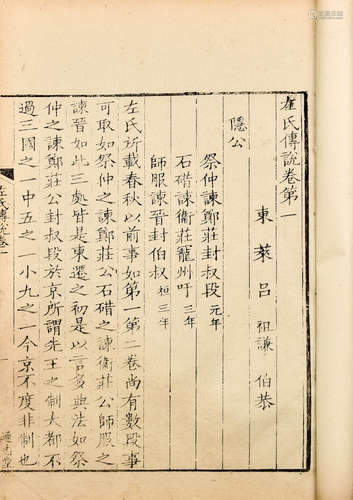 左氏傳說卷第一
東萊呂祖謙伯恭
隱公
祭仲諫鄭莊封叔段元年
石碏諫衛莊寵州吁三年
師服諫晉封伯叔桓三年
左氏所載春秋以前事如第一第二卷尚有數段事
可取如祭仲之諫鄭莊公石碏之諫衛莊公師服之
諫晉如此三處皆是東遷之初是以言多典法如祭
仲之諫鄭莊公封叔段於京所謂先王之制大都不
過三國之一中五之一小九之一今京不度非制也
左氏傳說卷一
通志堂